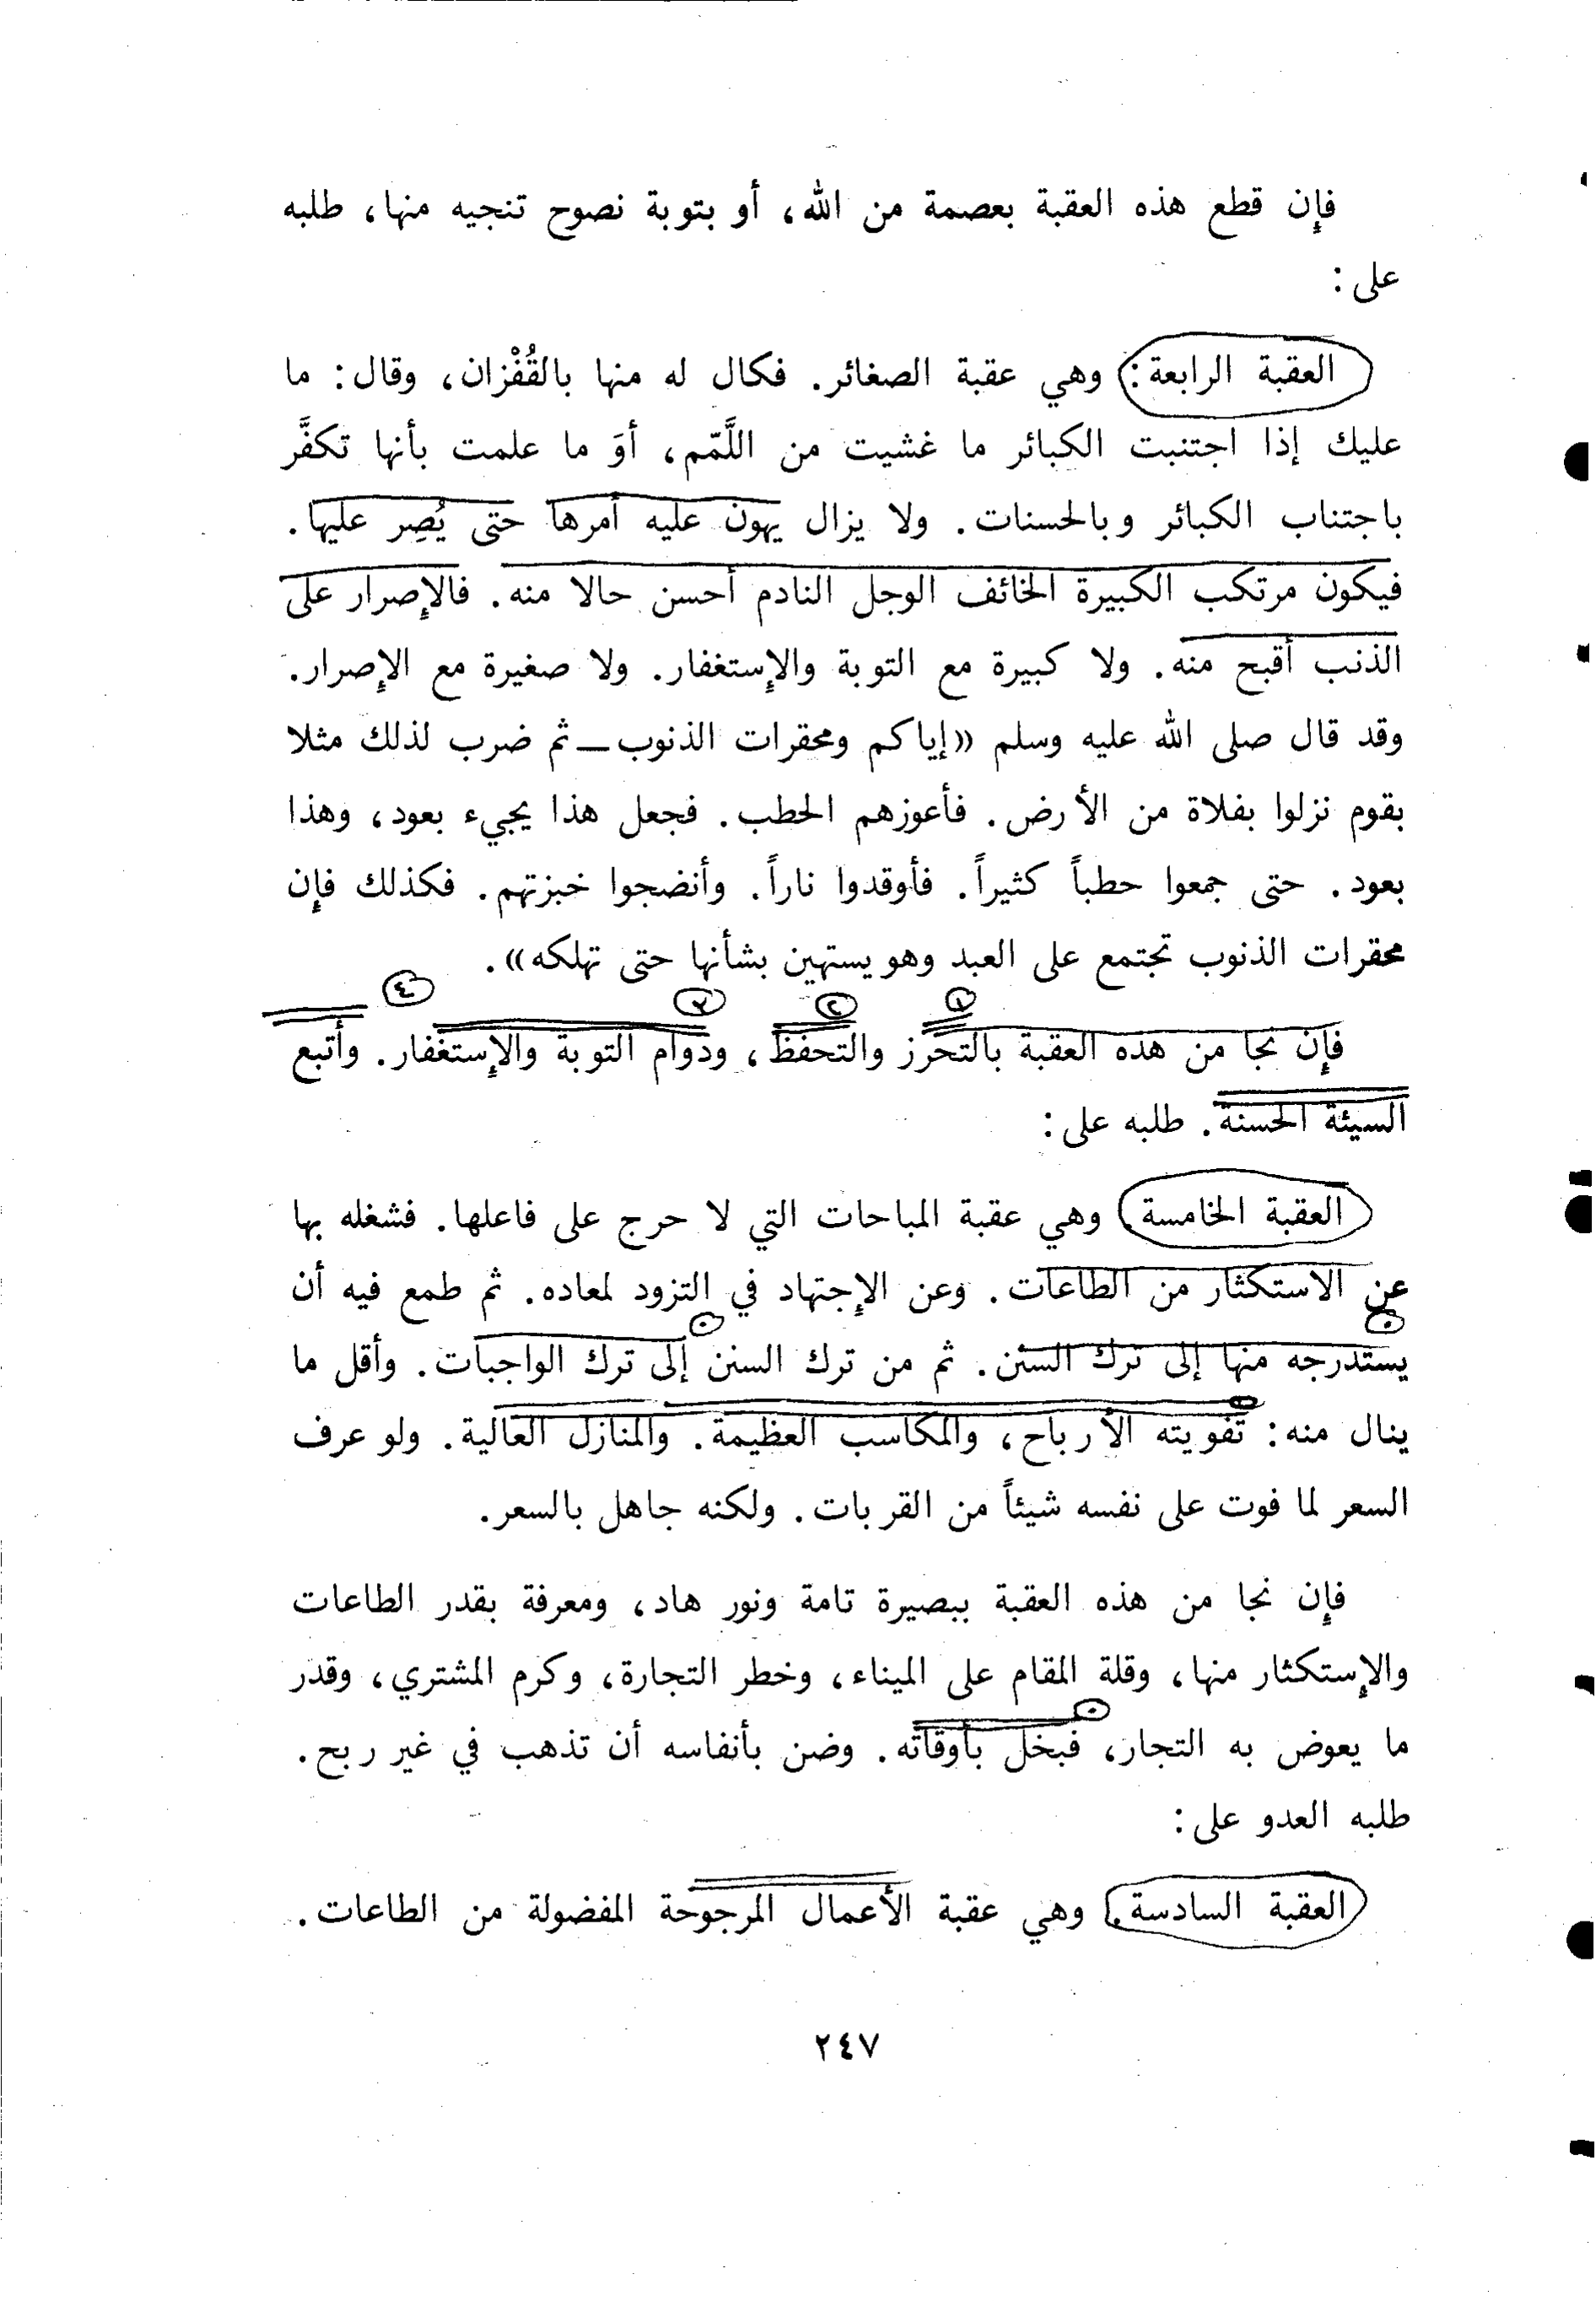 فإن قطع هذه العقبة بعصمة من الله، أو بتوبة نصوح تنجيه منها، طلبه
على:
العقبة الرابعة: وهي عقبة الصغائر. فكال له منها بالقُفْزان، وقال: ما
عليك إذا اجتنبت الكبائر ما غشيت من اللَّمّم، أوَ ما علمت بأنها تكفَّر
باجتناب الكبائر وبالحسنات. ولا يزال يهون عليه أمرها حتى يُصِر عليها.
فيكون مرتكب الكبيرة الخائف الوجل النادم أحسن حالا منه. فالإصرار على
الذنب أقبح منه. ولا كبيرة مع التوبة والإستغفار. ولا صغيرة مع الإصرار.
وقد قال صلى الله عليه وسلم «إياكم ومحقرات الذنوب ــ ثم ضرب لذلك مثلا
بقوم نزلوا بفلاة من الأرض. فأعوزهم الحطب. فجعل هذا يجيء بعود، وهذا
بعود. حتى جمعوا حطباً كثيراً. فأوقدوا ناراً. وأنضجوا خبزتهم. فكذلك فإن
محقرات الذنوب تجتمع على العبد وهو يستهين بشأنها حتى تهلكه».
١ ٢ ٣ ٤
فإن نجا من هذه العقبة بالتحرز والتحفظ، ودوام التوبة والإستغفار. وأتبع
السيئة الحسنة. طلبه على:
العقبة الخامسة. وهي عقبة المباحات التي لا حرج على فاعلها. فشغله بها
عن الاستكثار من الطاعات. وعن الإجتهاد في التزود لمعاده. ثم طمع فيه أن
يستدرجه منها إلى ترك السنن. ثم من ترك السنن إلى ترك الواجبات. وأقل ما
ينال منه: تفويته الأرباح، والمكاسب العظيمة. والمنازل العالية. ولو عرف
السعر لما فوت على نفسه شيئاً من القربات. ولكنه جاهل بالسعر.
فإن نجا من هذه العقبة ببصيرة تامة ونور هاد، ومعرفة بقدر الطاعات
والإستكثار منها، وقلة المقام على الميناء، وخطر التجارة، وكرم المشتري، وقدر
ما يعوض به التجار، فبخل بأوقاته. وضن بأنفاسه أن تذهب في غير ربح.
طلبه العدو على:
العقبة السادسة. وهي عقبة الأعمال المرجوحة المفضولة من الطاعات.
٢٤٧